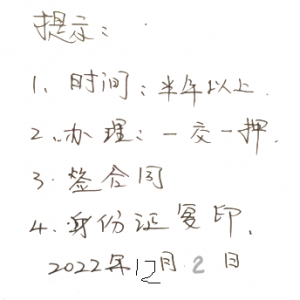 提示：
1、时间：半年以上.
2、办理：一交一押.
3.签合同
4.身份证复印.
2022年12月2日